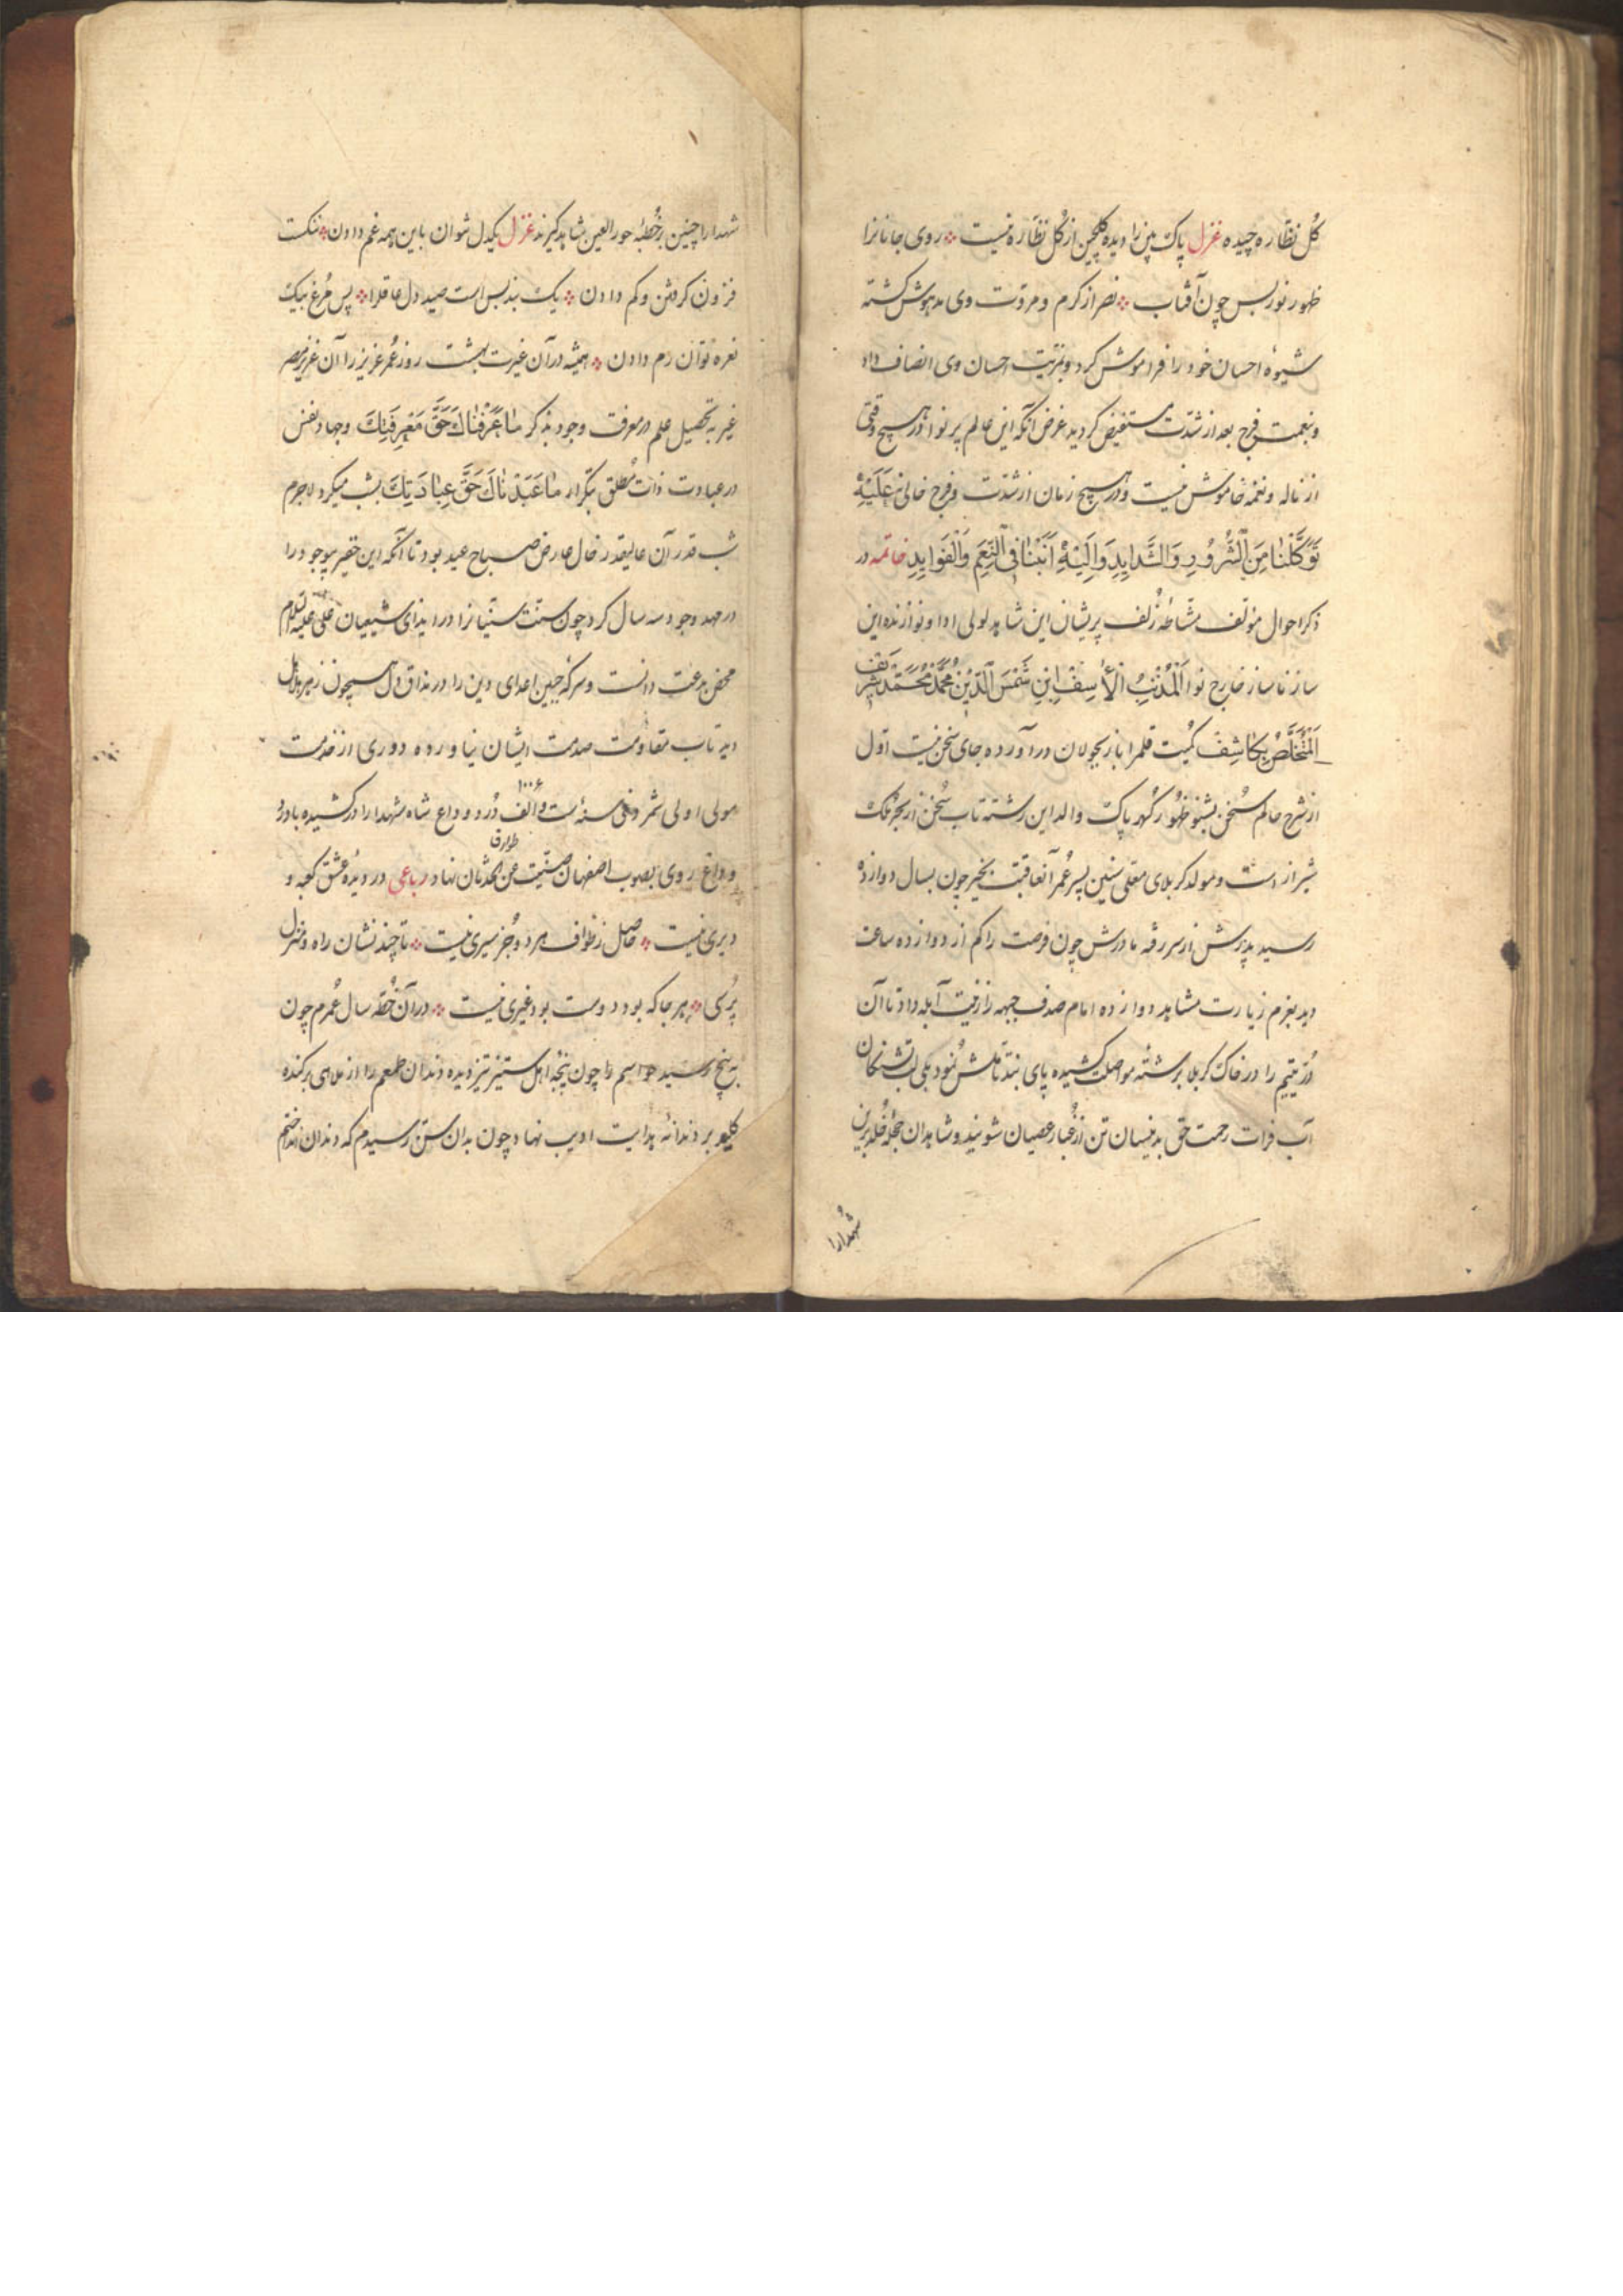 گل نظاره چیده غزل پاک بین را دیده گلچین از گل نظاره نیست روی جانانرا
ظهور نور بس چون آفتاب نصر از کرم و مروت وی مدهوش گشته
شیوهٔ احسان خود را فراموش کرد و بتربیت احسان وی انصاف داد
و بنعمت فرج بعد از شدت مستفیض گردید غرض آنکه این عالم پر نوا در هیچ وقتی
از ناله و نغمه خاموش نیست و در هیچ زمان از شدت و فرج خالی نه عَلَیْهِ
تَوَکَّلْنَا مِنَ الشُّرُورِ وَالشَّدایِدِ وَاِلَیْهِ اَنَبْنَا فِی النِّعَمِ وَالْفَوایِدِ خاتمه در
ذکر احوال مؤلف مشاطهٔ زلف پریشان این شاهد لولی ادا و نوازنده این
ساز ناساز خارج نوا اَلْمُذْنِبُ الْأَسِف اِبنِ شَمْسَ الدّینْ مُحَمَّدْ مُحَمَّدْ شَرِیْف
اَلْمُتَخَلِّصُ بِکاشِفْ کمیت قلمرا باز بجولان درآورده جای سخن نیست اول
از شرح حالم سخن بشنو ظهور گهر پاک والد این رشته تاب سخن از بحر خاک
شیراز است و مولد کربلای معلی سنین پسر عمر آنعاقبت بخیر چون بسال دوازده
رسید پدرش از سر رفه مادرش چون فرصت را کم از دوازده ساعت
دید بعزم زیارت مشاهد دوازده امام صدف جبهه را زینت آبله داد تا آن
در یتیم را در خاک کربلا برشته مواصلت کشیده پای بند تأملش نمود بلی لب تشنگان
آب فرات رحمت حق بدینسان تن از غبار عصیان شویند و شاهدان حجله خلد برین
شهدارا
شهدارا چنین بخطبه حورالعین شاهد گیرند غزل یکدل نتوان باین همه غم دادن ننگست
فزون گرفتن و کم دادن یک بند بس است صید دل عاقلرا پس مرغ بیک
نعره توان رم دادن همیشه در آن غیرت بهشت روز عمر عزیز را آن عزیز مصر
غیر به تحصیل علم در معرفت وجود بذکر مٰا عَرَفْنٰاکَ حَقَّ مَعْرِفَتِکَ و جهاد نفس
در عبادت ذات مطلق بتکرار مٰا عَبَدْنٰاکَ حَقَّ عِبٰادَتِکَ بشب میکرد لاجرم
شب قدر آن عالیقدر خال عارض صباح عید بود تا آنکه این حقیر موجود را
در مهد وجود سه سال کرد چون سنت سنیانرا در ایذای شیعیان علی علیه السلام
محض بدعت دانست و سرکه جبین اعدای دین را در مذاق دل همچون زهر هلاهل
دید تاب مقاومت صدمت ایشان نیاورده دوری از خدمت
مولی اولی شمرد فی سنهٔ ست و الف ۱۰۰۶ درود وداع شاه شهدارا در کشیده با درد
و داغ روی بصوب اصفهان صینت عن طوارق الحدثان نهاد رباعی در دیدهٔ عشق کعبه و
دیری نیست حاصل ز طواف هر دو جز سیری نیست تا چند نشان راه و منزل
پرسی هر جا که بود دوست بود غیری نیست در آن خطه سال عمرم چون
به پنج رسید حواسم را چون پنجهٔ اهل ستیز تیز دیده دندان طمعم را از ملاهی برکنده
کلید بر دندانهٔ هدایت ادیب نهاد چون بدان سن رسیدم که دندان انداختم